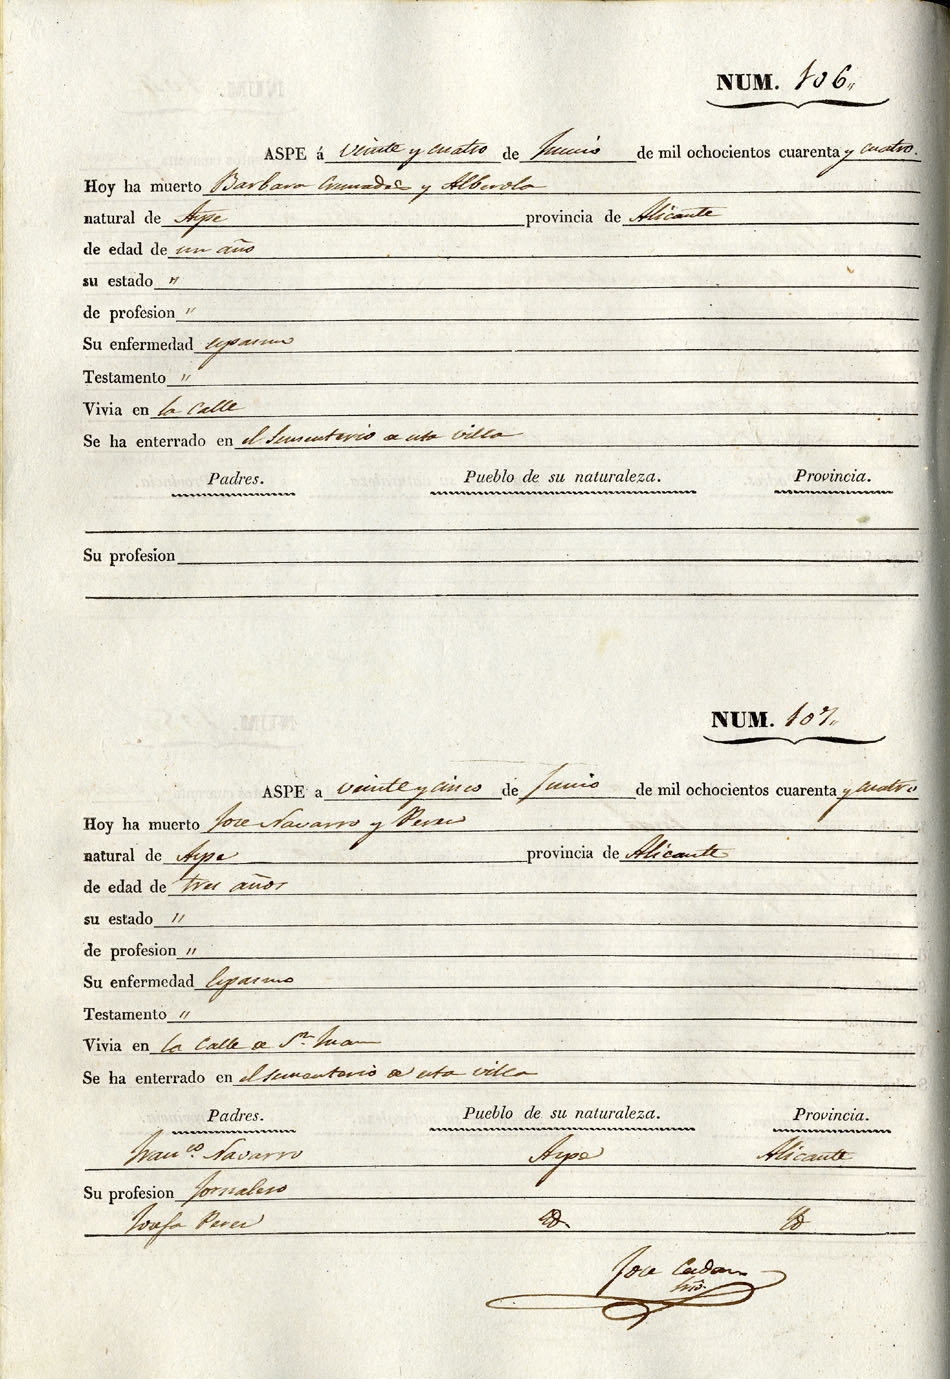 NUM. 106
ASPE á veinte y cuatro de Junio de mil ochocientos cuarenta y cuatro.
Hoy ha muerto Barbara y Alberola
natural de Aspe provincia de Alicante
de edad de un año
su estado "
de profesion "
Su enfermedad espasmo
Testamento "
Vivia en la Calle
Se ha enterrado en el Sementerio de esta villa
Padres. Pueblo de su naturaleza. Provincia.
Su profesion
NUM. 107
ASPE a veinte y cinco de Junio de mil ochocientos cuarenta y cuatro
Hoy ha muerto Jose Navarro y Perez
natural de Aspe provincia de Alicante
de edad de tres años
su estado "
de profesion "
Su enfermedad Espasmo
Testamento "
Vivia en la Calle de Sn. Juan
Se ha enterrado en el sementerio de esta villa
Padres. Pueblo de su naturaleza. Provincia.
Franco. Navarro Aspe Alicante
Su profesion Jornalero
Josefa Perez Id. Id
Jose